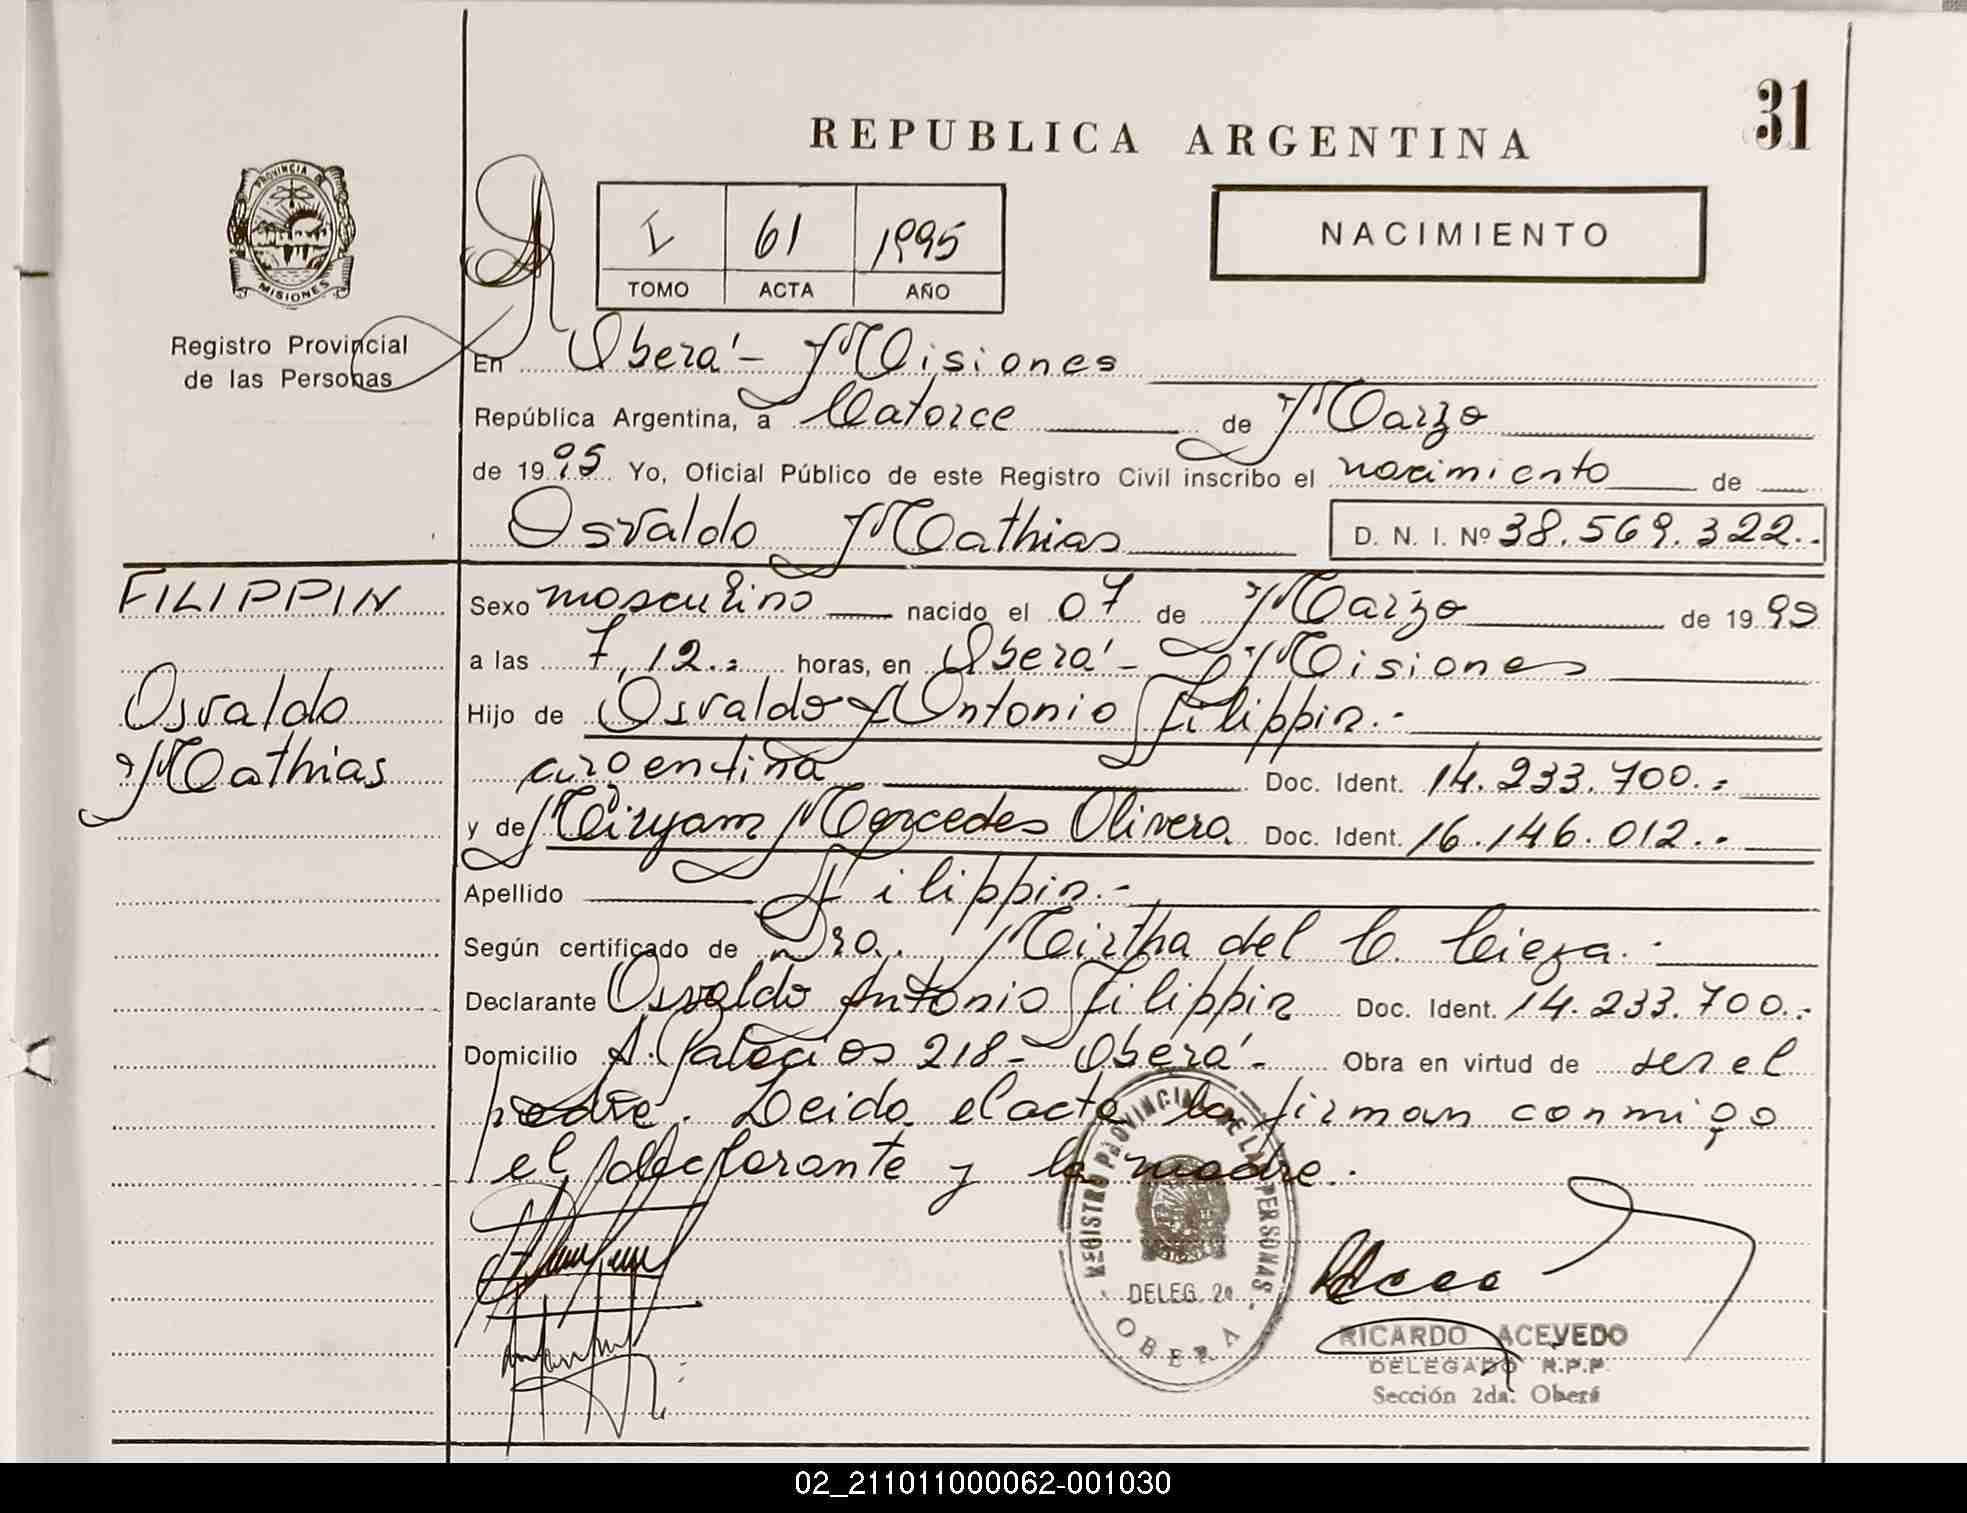 31
REPUBLICA ARGENTINA
PROVINCIA DE
MISIONES
Registro Provincial
de las Personas
I 61 1995
TOMO ACTA AÑO
NACIMIENTO
En Oberá - Misiones
República Argentina, a Catorce de Marzo
de 1995 Yo, Oficial Público de este Registro Civil inscribo el nacimiento de
Osvaldo Mathias D. N. I. Nº 38.569.322.-
FILIPPIN
Osvaldo
Mathias
Sexo masculino nacido el 07 de Marzo de 1995
a las 7,12.- horas, en Oberá - Misiones
Hijo de Osvaldo Antonio Filippin.-
argentina Doc. Ident. 14.233.700.-
y de Miryam Mercedes Olivera Doc. Ident. 16.146.012.-
Apellido Filippin.-
Según certificado de Dra. Mirtha del C. Cieza.-
Declarante Osvaldo Antonio Filippin Doc. Ident. 14.233.700.-
Domicilio A. Palacios 218 - Oberá - Obra en virtud de ser el
padre. Leida el acta la firman conmigo
el declarante y la madre.
REGISTRO PROVINCIAL DE LAS PERSONAS
DELEG. 2a
OBERA
RICARDO ACEVEDO
DELEGADO R.P.P.
Sección 2da. Oberá
02_211011000062-001030